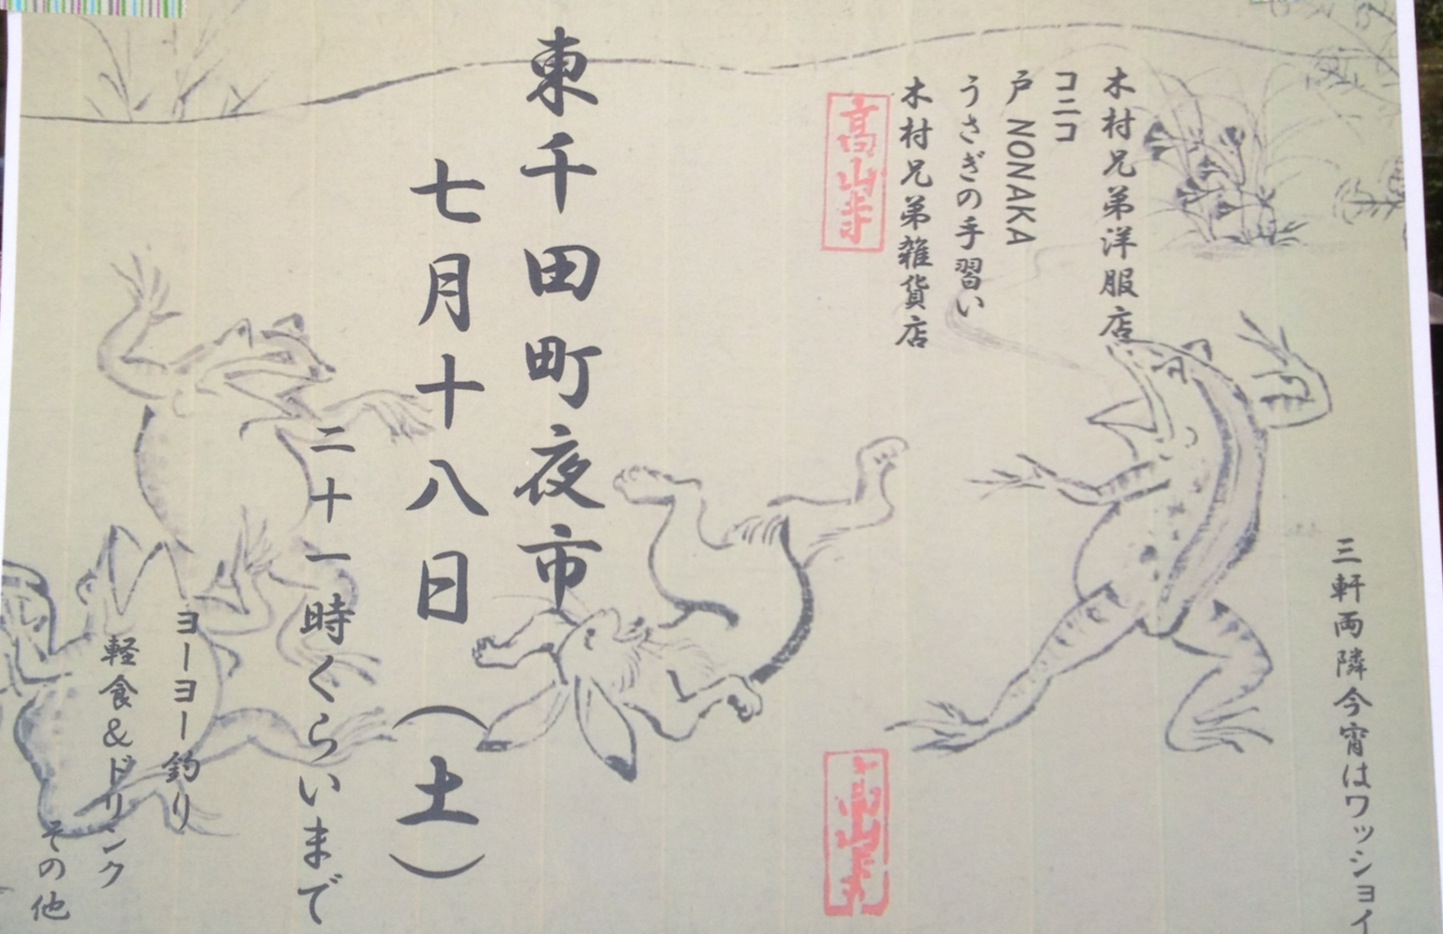 三軒両隣今宵はワッショイ
木村兄弟洋服店
コニコ
戸 NONAKA
うさぎの手習い
木村兄弟雑貨店
高山寺
高山寺
東千田町夜市
七月十八日（土）
二十一時くらいまで
ヨーヨー釣り
軽食＆ドリンク
その他